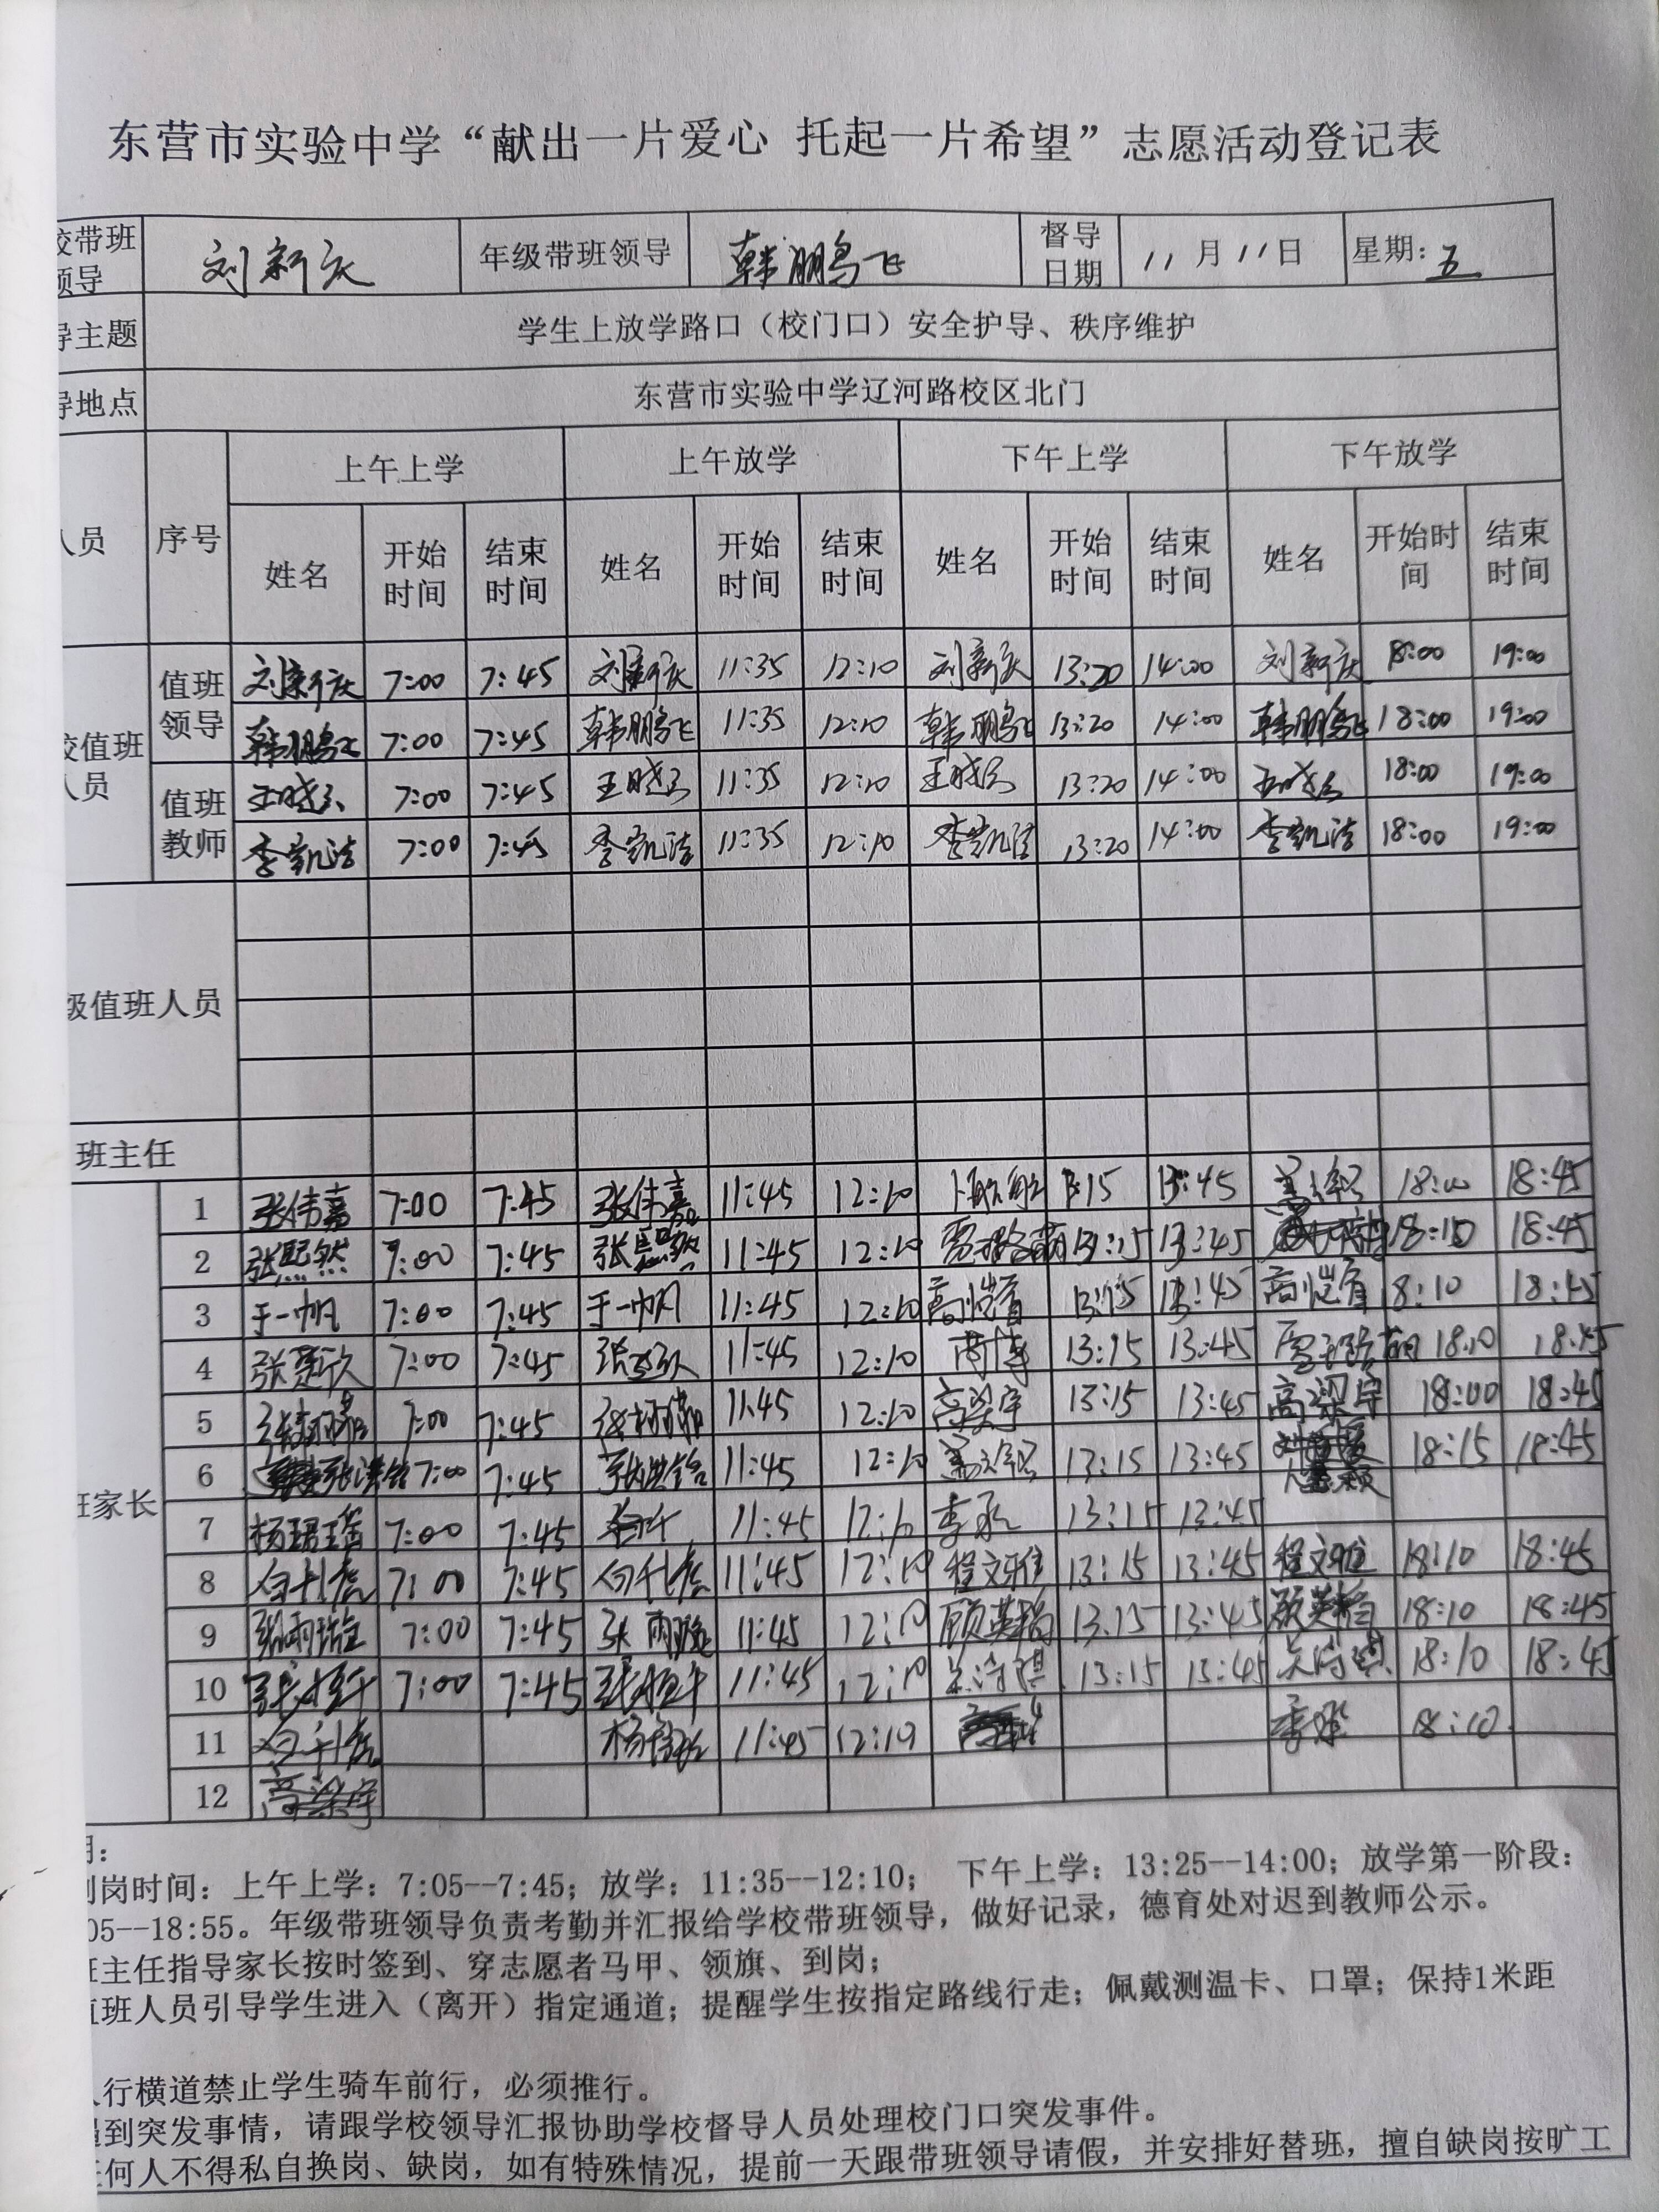 东营市实验中学“献出一片爱心 托起一片希望”志愿活动登记表
校带班领导 刘新庆 年级带班领导 韩鹏飞 督导日期 11月11日 星期：五
导主题 学生上放学路口（校门口）安全护导、秩序维护
导地点 东营市实验中学辽河路校区北门
人员 序号 上午上学 上午放学 下午上学 下午放学
姓名 开始时间 结束时间 姓名 开始时间 结束时间 姓名 开始时间 结束时间 姓名 开始时间 结束时间
校值班人员
值班领导 刘新庆 7:00 7:45 刘新庆 11:35 12:10 刘新庆 13:20 14:00 刘新庆 18:00 19:00
韩鹏飞 7:00 7:45 韩鹏飞 11:35 12:10 韩鹏飞 13:20 14:00 韩鹏飞 18:00 19:00
值班教师 7:00 7:45 11:35 12:10 13:20 14:00 18:00 19:00
李凯洁 7:00 7:45 李凯洁 11:35 12:10 李凯洁 13:20 14:00 李凯洁 18:00 19:00
级值班人员
班主任
班家长
1 张伟嘉 7:00 7:45 张伟嘉 11:45 12:10 13:45 18:00 18:45
2 张熙然 7:00 7:45 张熙然 11:45 12:10 13:15 13:45 18:10 18:45
3 于一帆 7:00 7:45 于一帆 11:45 12:10 高恺育 13:15 13:45 高恺育 18:10 18:45
4 7:00 7:45 11:45 12:10 13:15 13:45 18:10 18:45
5 7:00 7:45 11:45 12:10 高梁宇 13:15 13:45 高梁宇 18:00 18:45
6 张洪铭 7:00 7:45 张洪铭 11:45 12:10 13:15 13:45 18:15 18:45
7 杨珺瑶 7:00 7:45 11:45 12:10 13:15 13:45
8 7:00 7:45 11:45 12:10 程文雅 13:15 13:45 程文雅 18:10 18:45
9 7:00 7:45 11:45 12:10 顾英楠 13:15 13:45 顾英楠 18:10 18:45
10 7:00 7:45 11:45 12:10 13:15 13:45 18:10 18:45
11 11:45 12:10 18:10
12
明：
到岗时间：上午上学：7:05--7:45；放学：11:35--12:10； 下午上学：13:25--14:00；放学第一阶段：
05--18:55。年级带班领导负责考勤并汇报给学校带班领导，做好记录，德育处对迟到教师公示。
班主任指导家长按时签到、穿志愿者马甲、领旗、到岗；
值班人员引导学生进入（离开）指定通道；提醒学生按指定路线行走；佩戴测温卡、口罩；保持1米距
人行横道禁止学生骑车前行，必须推行。
遇到突发事情，请跟学校领导汇报协助学校督导人员处理校门口突发事件。
任何人不得私自换岗、缺岗，如有特殊情况，提前一天跟带班领导请假，并安排好替班，擅自缺岗按旷工